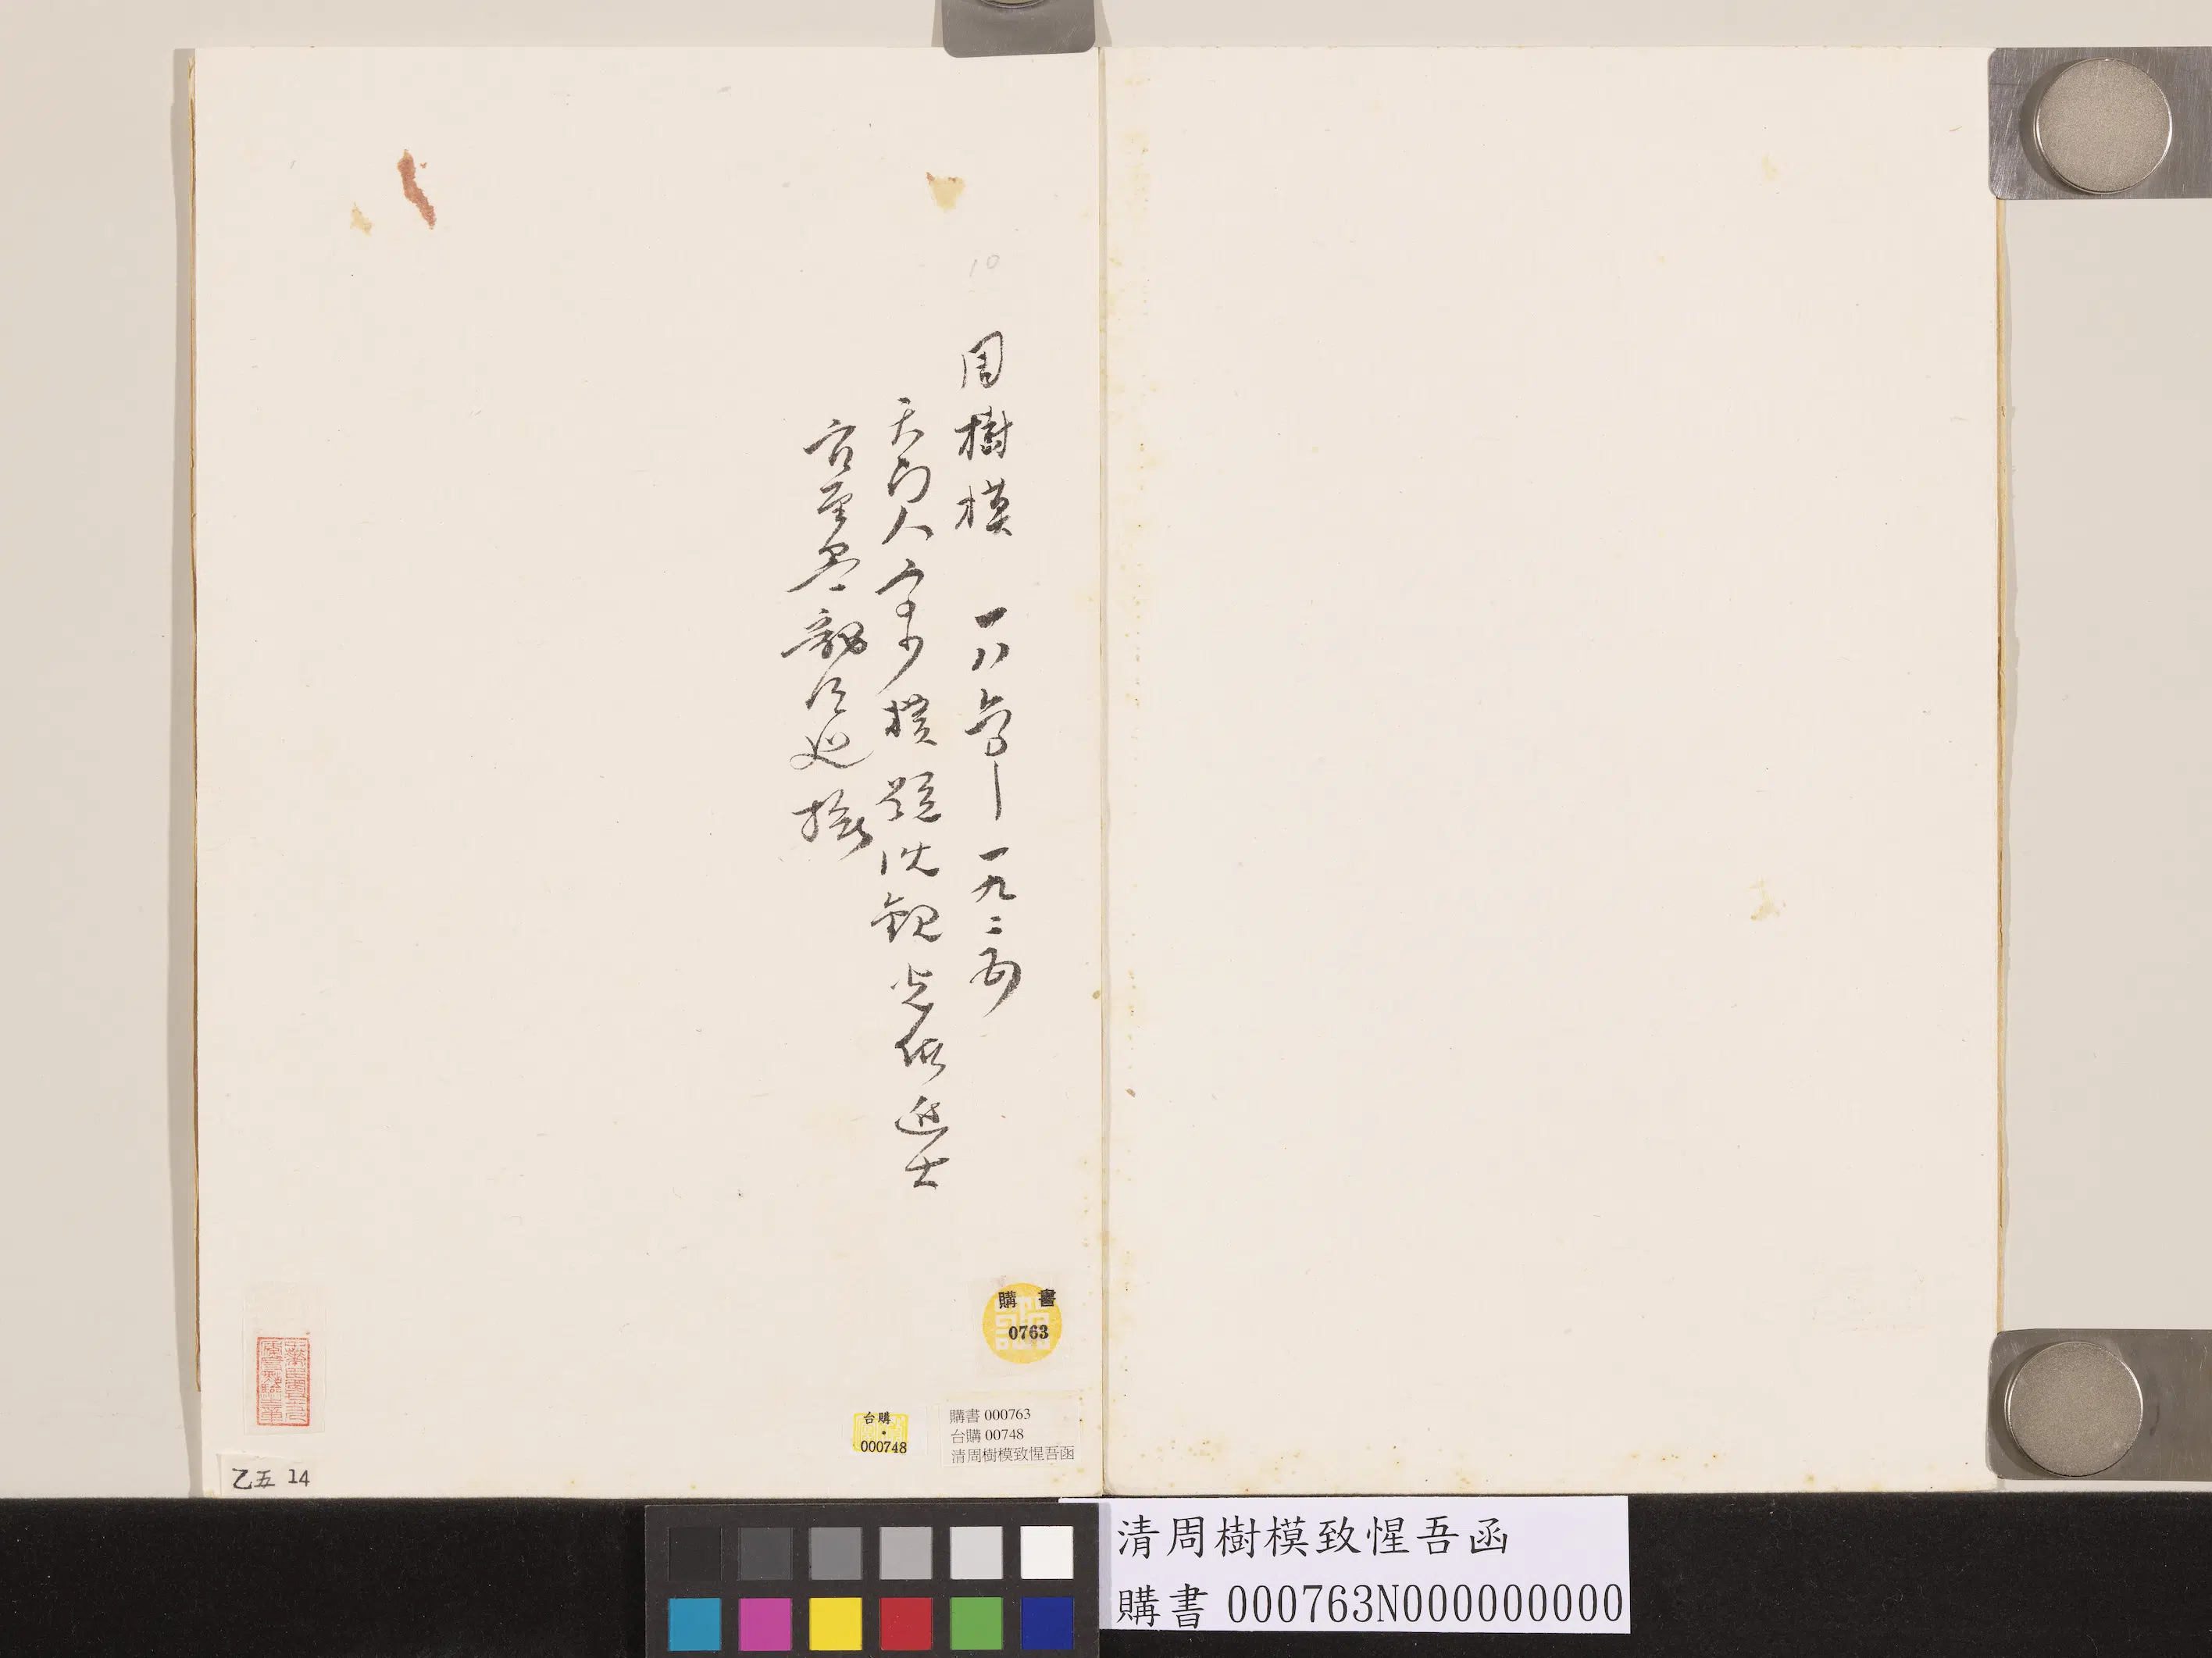 10
周樹模 一八六〇—一九二五
天門人 字少樸 號沈觀 光緒進士
官至黑龍江巡撫
購書
0763
台購
000748
購書 000763
台購 00748
清周樹模致惺吾函
乙五 14
清周樹模致惺吾函
購書 000763N000000000